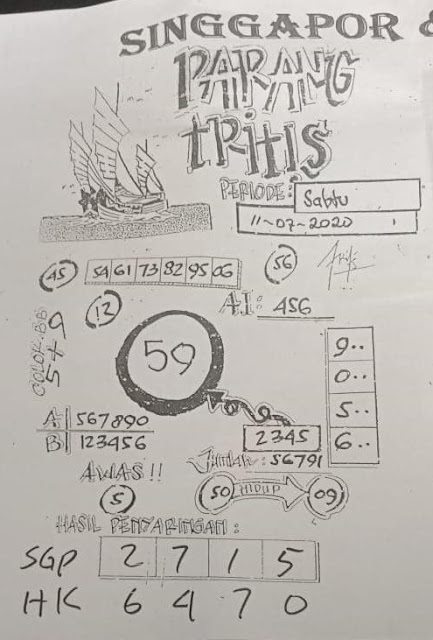 SINGGAPOR &
PARANG
TRITIS
PERIODE: Sabtu
11-07-2020
45 54 61 73 82 95 06 56
12 AI: 456
COLOK BB: 5+9
59
9..
0..
5..
6..
A 567890
B 123456
2345
Jumlah: 56791
AWAS!!
5 50 HIDUP 09
HASIL PENYARINGAN:
SGP 2 7 1 5
HK 6 4 7 0